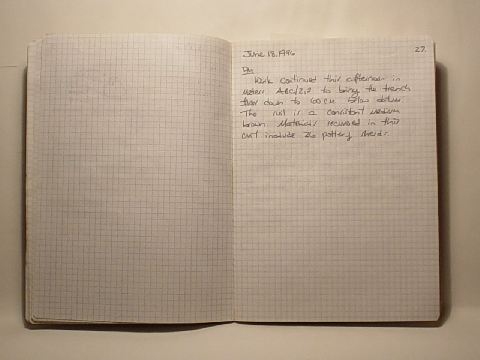 June 18, 1996
27
Pm
Work continued this afternoon in
meters ABC/21# to bring the trench
floor down to 60 cm below datum.
The soil is a consistent medium
brown. Materials recovered in this
unit include 26 pottery sherds.